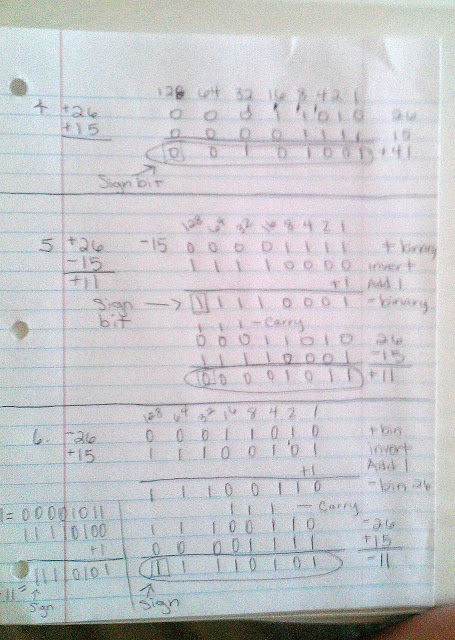 128 64 32 16 8 4 2 1
4 +26 0 0 0 1 1 0 1 0 26
+15 0 0 0 0 1 1 1 1 15
0 0 1 0 1 0 0 1 +41
Sign bit
128 64 32 16 8 4 2 1
5 +26 -15 0 0 0 0 1 1 1 1 + binary
-15 1 1 1 1 0 0 0 0 invert
+11 +1 Add 1
Sign bit → 1 1 1 1 0 0 0 1 - binary
1 1 1 - Carry
0 0 0 1 1 0 1 0 26
1 1 1 1 0 0 0 1 -15
0 0 0 0 1 0 1 1 +11
128 64 32 16 8 4 2 1
6. -26 0 0 0 1 1 0 1 0 + bin
+15 1 1 1 0 0 1 0 1 invert
+1 Add 1
1 1 1 0 0 1 1 0 - bin 26
1 1 1 - Carry
1 1 1 0 0 1 1 0 -26
0 0 0 0 1 1 1 1 +15
1 1 1 1 0 1 0 1 -11
Sign
1 = 00001011
1111 0100
+1
11 = 1111 0101
Sign